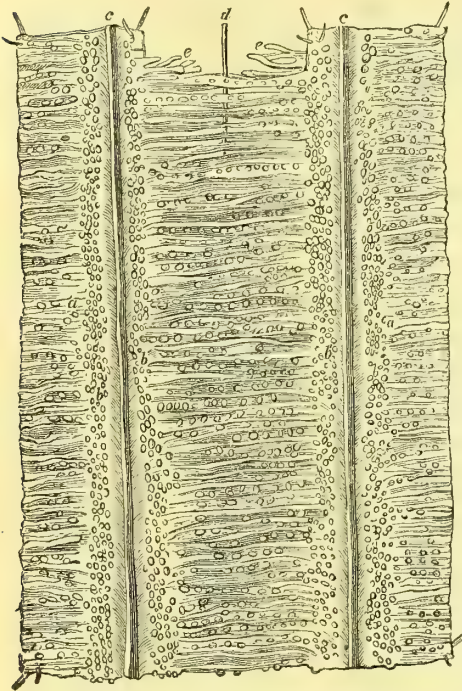 c d c
e e
a a
b b
b